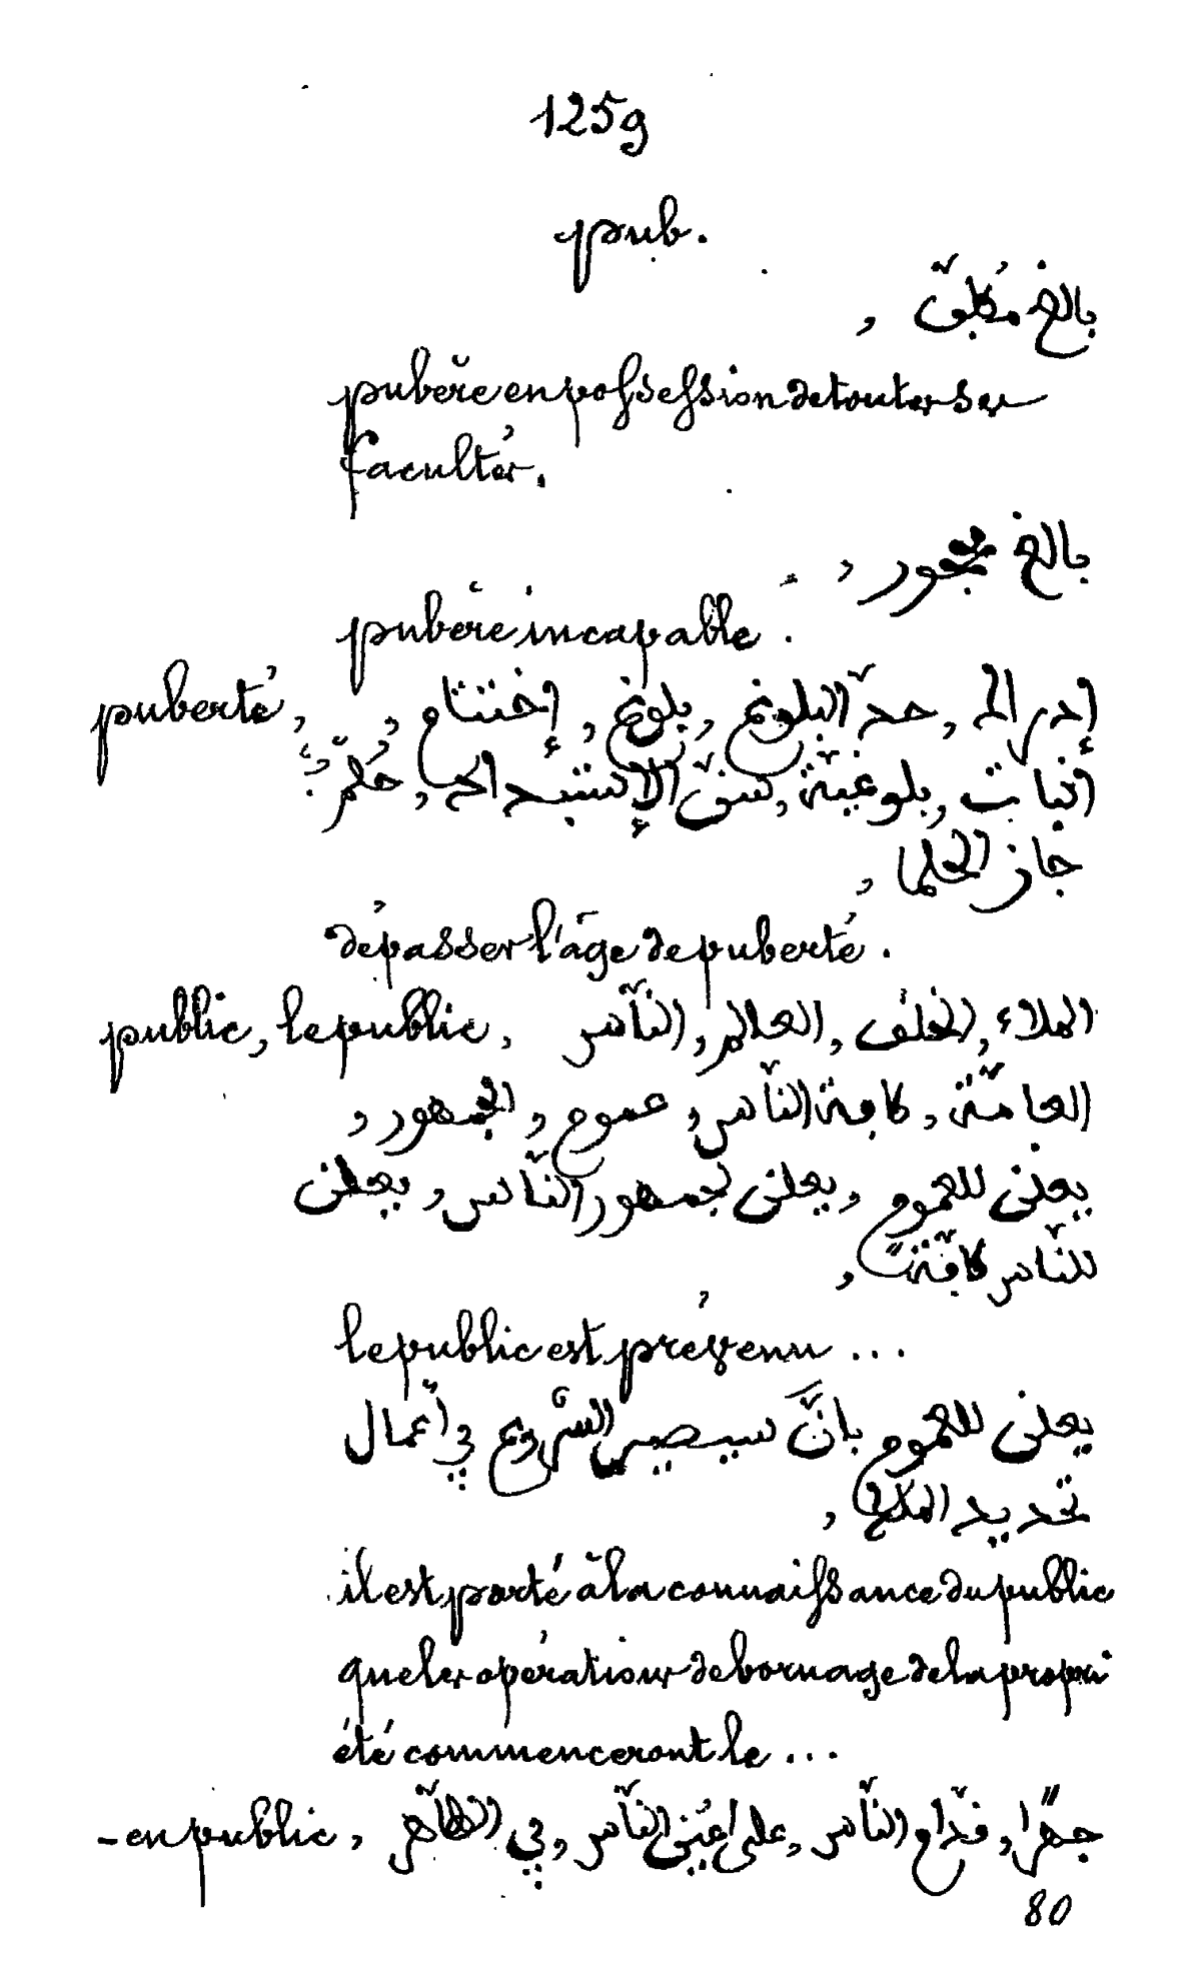 1259
pub.
بالغ مُكلّف ,
pubère en possession de toutes ses
facultés.
بالغ محجور ,
pubère incapable.
puberté, إدراك, حدّ البلوغ, بلوغ, إختتام,
إنبات, بلوغيّة, سنّ الإستبداد, حُلم
جاز الحلما ,
dépasser l'âge de puberté.
public, le public, الملاء, الخلق, العالم, النّاس
العامّة, كافة النّاس, عموم, الجمهور,
يعلن للعموم, يعلن لجمهور النّاس, يعلن
للنّاس كافّة ,
le public est prévenu ...
يعلن للعموم بانّ سيصير الشروع في أعمال
تحديد الملك ,
il est porté à la connaissance du public
que les opérations de bornage de la propri
été commenceront le ...
- en public, جهرًا, قدّام النّاس, على اعين النّاس, في الظّاهر
80